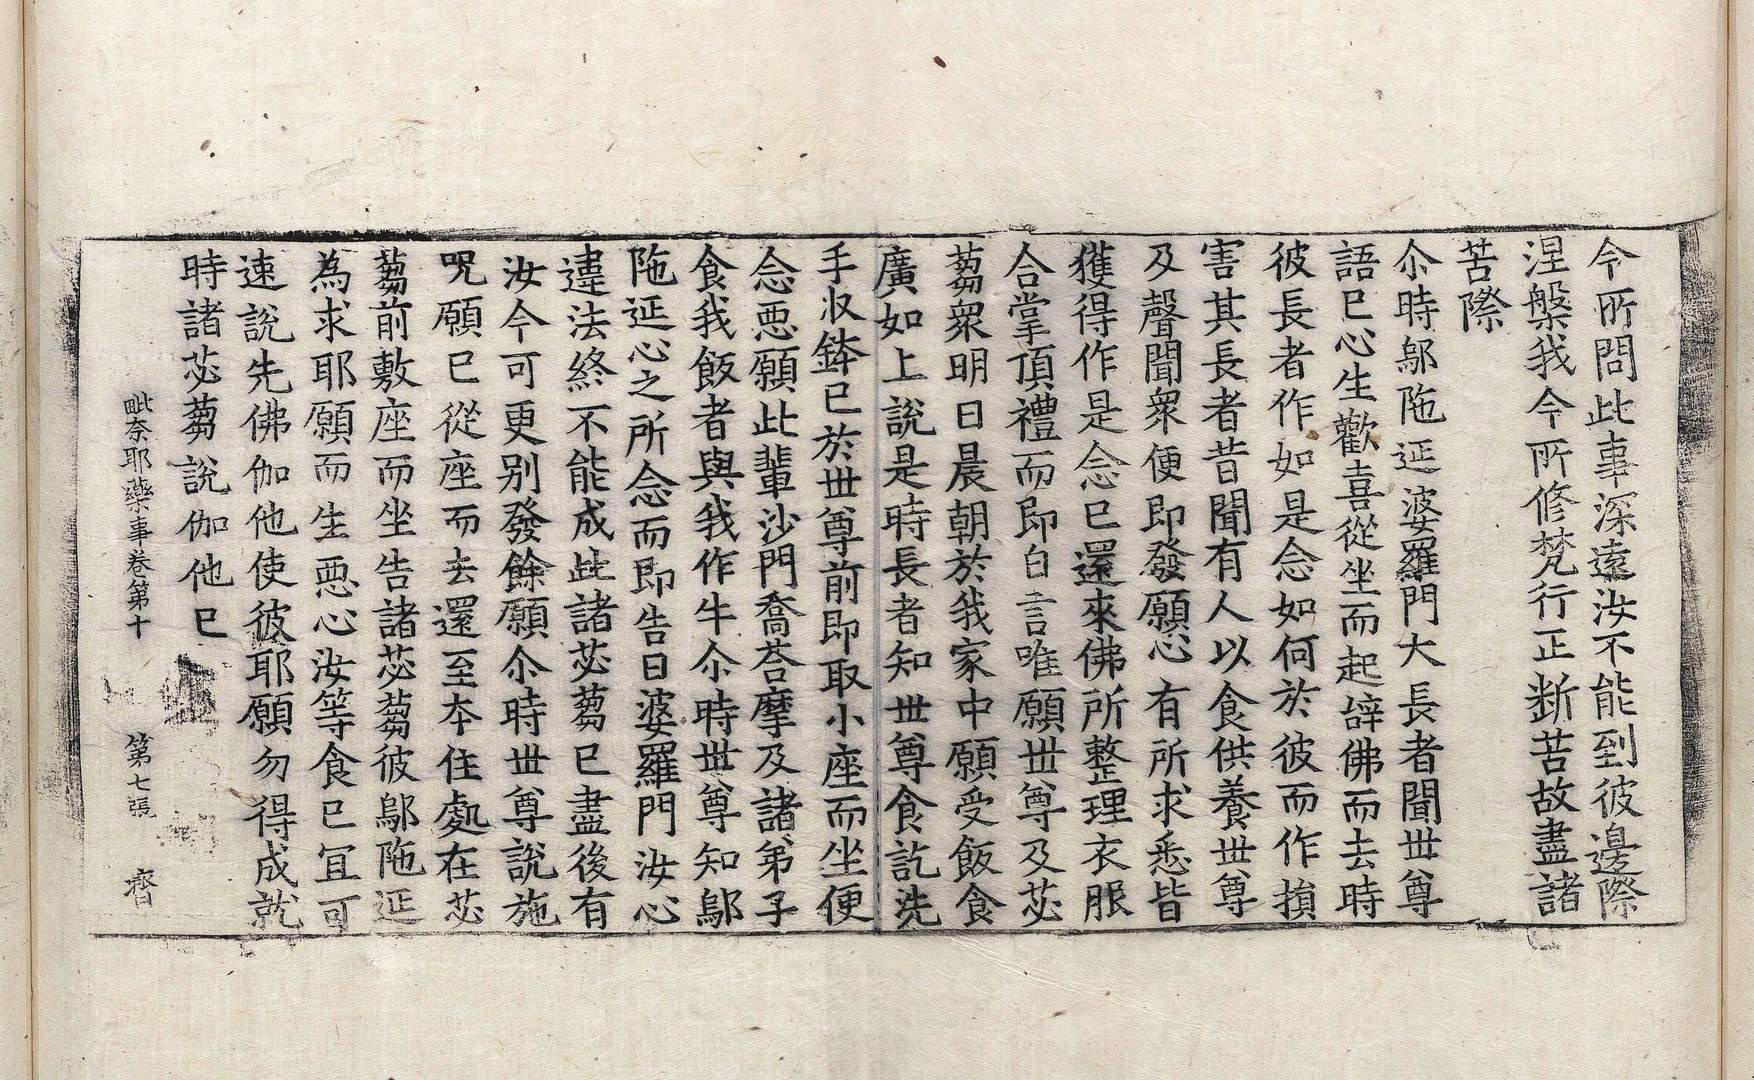 今所問此事深遠汝不能到彼邊際
涅槃我今所修梵行正断苦故盡諸
苦際
尒時鄔陁延婆羅門大長者聞世尊
語已心生歡喜從坐而起辝佛而去時
彼長者作如是念如何於彼而作損
害其長者昔聞有人以食供養世尊
及聲聞衆便即發願心有所求悉皆
獲得作是念已還來佛所整理衣服
合掌頂禮而即白言唯願世尊及苾
蒭衆明日晨朝於我家中願受飯食
廣如上說是時長者知世尊食訖洗
手收鉢已於世尊前即取小座而坐便
念惡願此輩沙門喬荅摩及諸弟子
食我飯者與我作牛尒時世尊知鄔
陁延心之所念而即告曰婆羅門汝心
違法終不能成此諸苾蒭已盡後有
汝今可更別發餘願尒時世尊說施
呪願已從座而去還至本住處在苾
蒭前敷座而坐告諸苾蒭彼鄔陁延
為求耶願而生惡心汝等食已冝可
速說先佛伽他使彼耶願勿得成就
時諸苾蒭說伽他已
毗奈耶藥事卷第十 第七張 齊